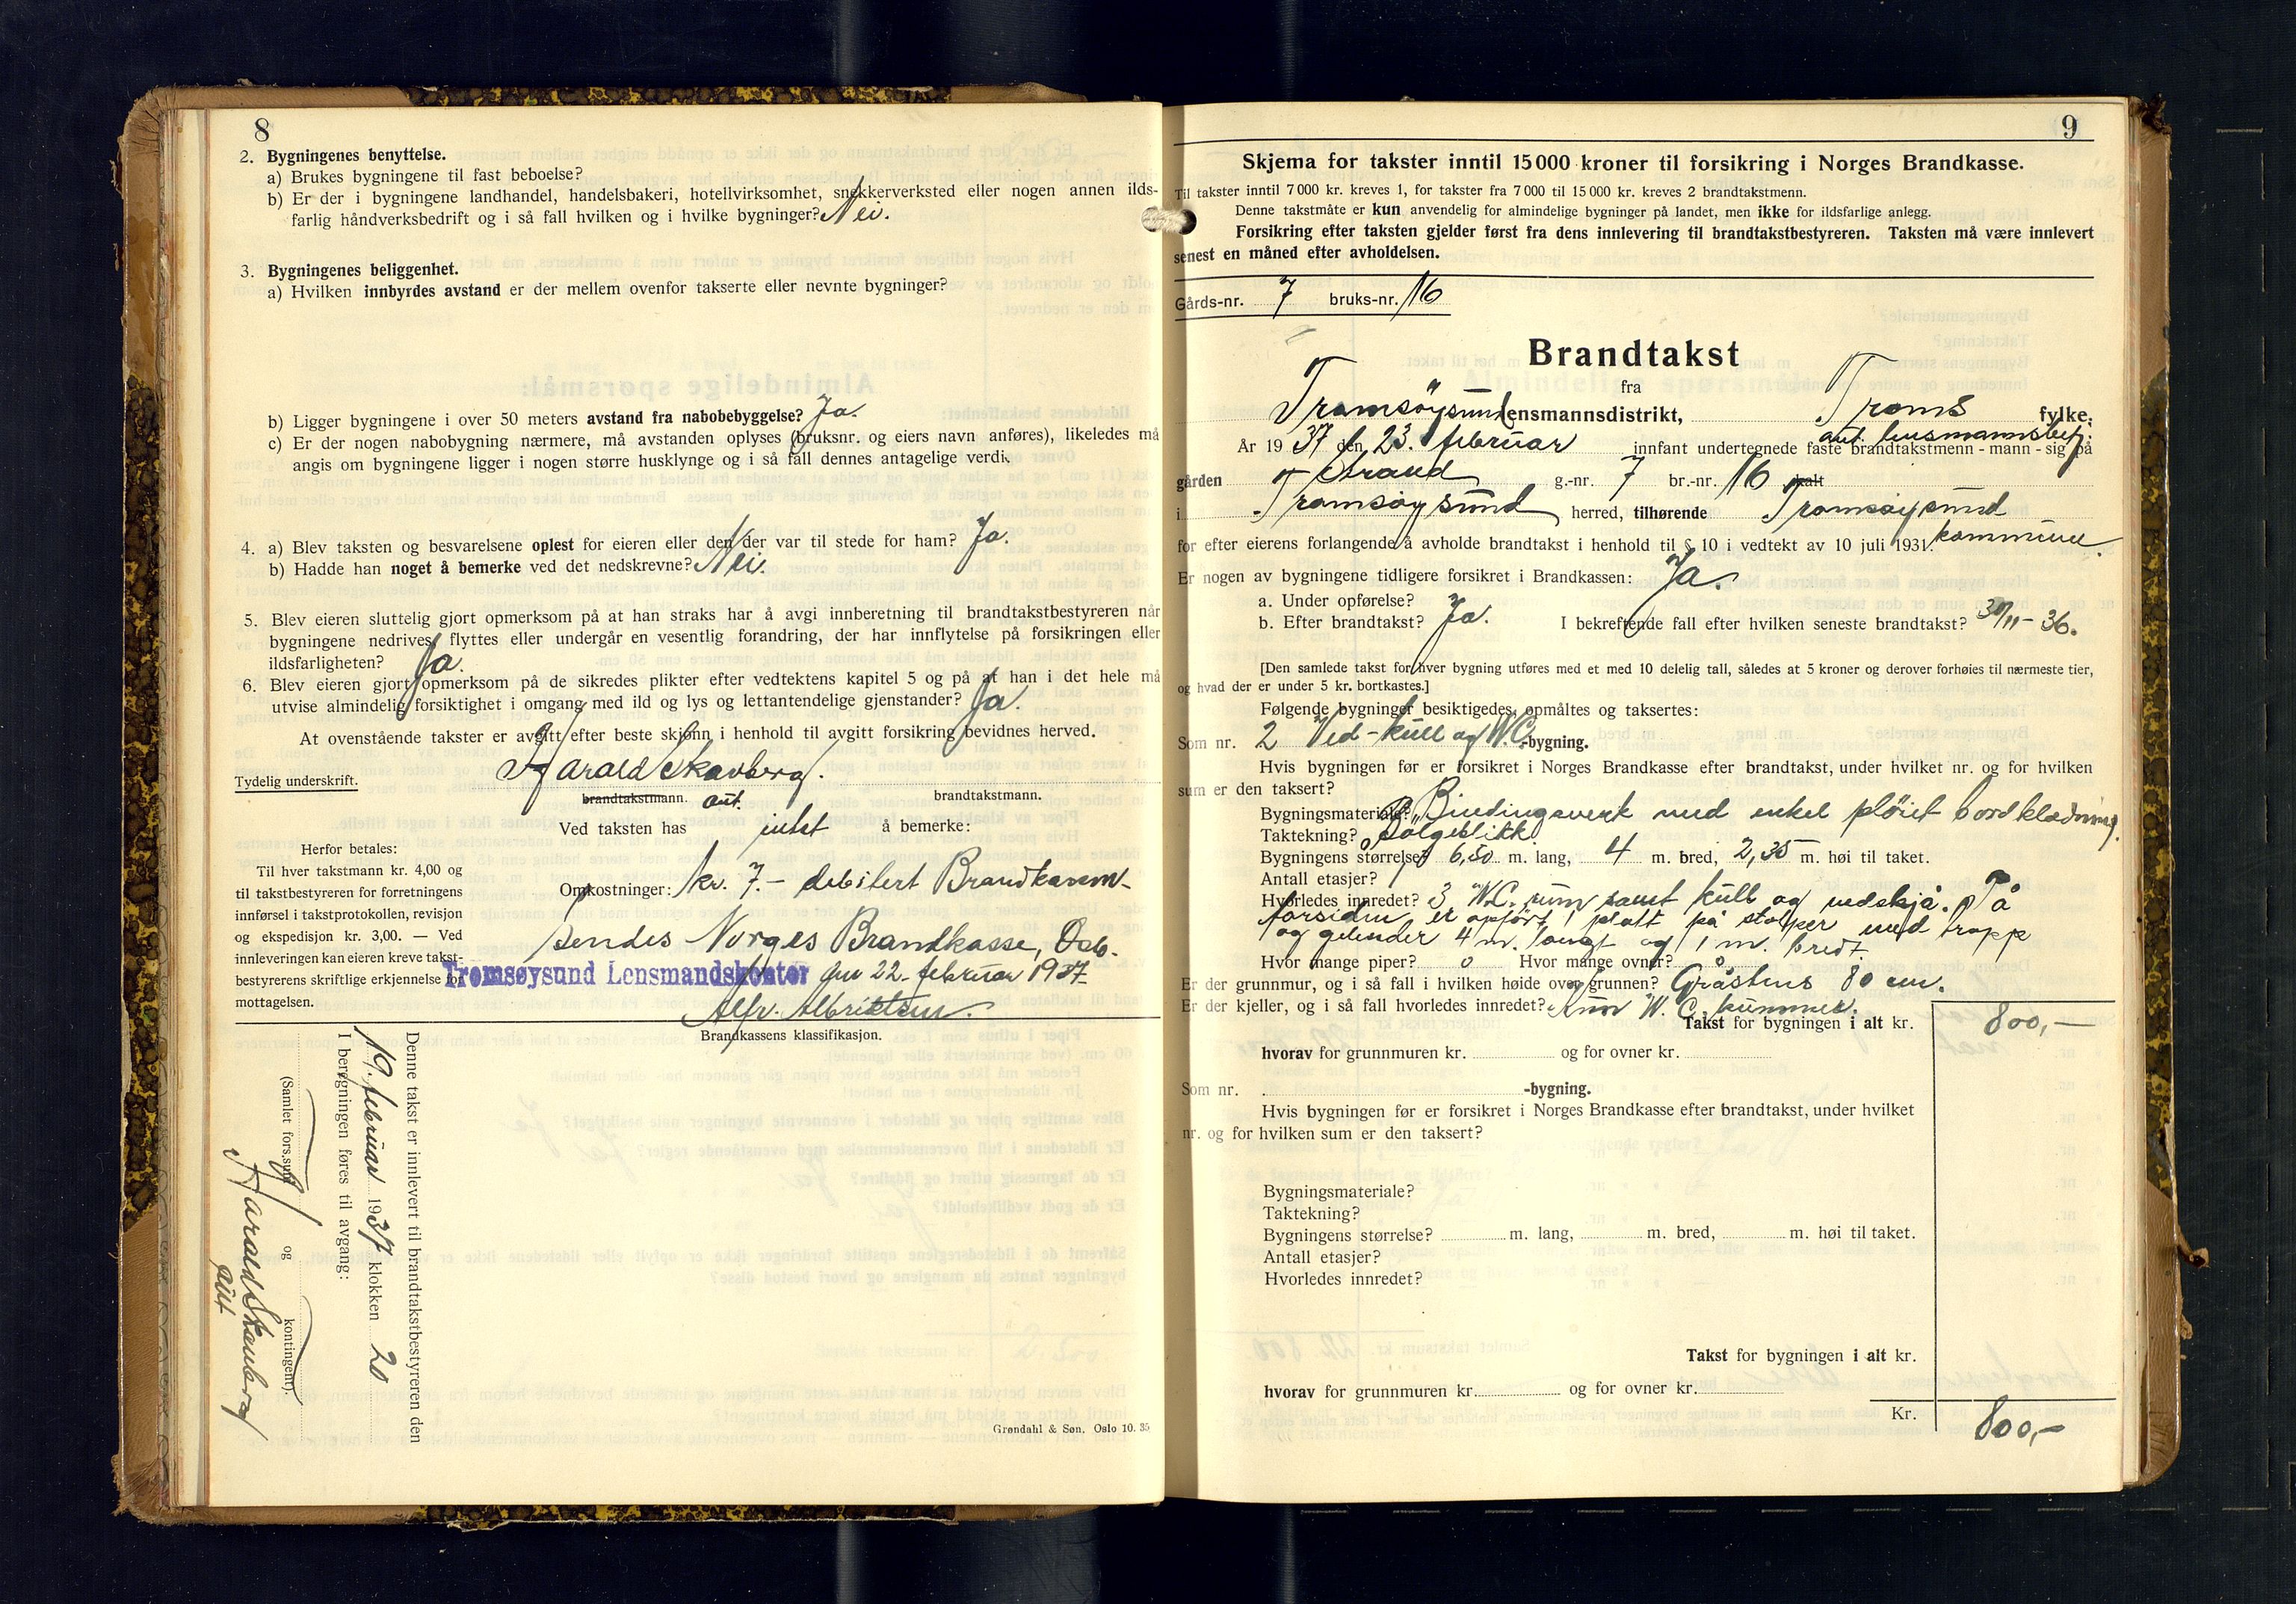 8
2. Bygningenes benyttelse.
a) Brukes bygningene til fast beboelse?
b) Er der i bygningene landhandel, handelsbakeri, hotellvirksomhet, snekkerverksted eller nogen annen ilds-
farlig håndverksbedrift og i så fall hvilken og i hvilke bygninger? Nei.
3. Bygningenes beliggenhet.
a) Hvilken innbyrdes avstand er der mellem ovenfor takserte eller nevnte bygninger?
b) Ligger bygningene i over 50 meters avstand fra nabobebyggelse? Ja.
c) Er der nogen nabobygning nærmere, må avstanden oplyses (bruksnr. og eiers navn anføres), likeledes må
angis om bygningene ligger i nogen større husklynge og i så fall dennes antagelige verdi.
4. a) Blev taksten og besvarelsene oplest for eieren eller den der var til stede for ham? Ja.
b) Hadde han noget å bemerke ved det nedskrevne? Nei.
5. Blev eieren sluttelig gjort opmerksom på at han straks har å avgi innberetning til brandtakstbestyreren når
bygningene nedrives, flyttes eller undergår en vesentlig forandring, der har innflytelse på forsikringen eller
ildsfarligheten? Ja.
6. Blev eieren gjort opmerksom på de sikredes plikter efter vedtektens kapitel 5 og på at han i det hele må
utvise almindelig forsiktighet i omgang med ild og lys og lettantendelige gjenstander? Ja.
At ovenstående takster er avgitt efter beste skjønn i henhold til avgitt forsikring bevidnes herved.
Tydelig underskrift. Harald Skavberg.
brandtakstmann. aut. brandtakstmann.
Ved taksten has intet å bemerke:
Herfor betales:
Til hver takstmann kr. 4,00 og
til takstbestyreren for forretningens
innførsel i takstprotokollen, revisjon
og ekspedisjon kr. 3,00. — Ved
innleveringen kan eieren kreve takst-
bestyrerens skriftlige erkjennelse for
mottagelsen.
Omkostninger: kr. 7.- debitert Brandkassen-
Sendes Norges Brandkasse, Oslo.
Tromsøysund Lensmandskontor den 22. februar 1937
Alfr. Albrigtsen.
Brandkassens klassifikasjon.
Denne takst er innlevert til brandtakstbestyreren den
19. februar 1937 klokken 20
I beregningen føres til avgang:
(Samlet fors.sum og kontingent).
Harald Skavberg
aut
Grøndahl & Søn, Oslo 10. 35
9
Skjema for takster inntil 15 000 kroner til forsikring i Norges Brandkasse.
Til takster inntil 7 000 kr. kreves 1, for takster fra 7 000 til 15 000 kr. kreves 2 brandtakstmenn.
Denne takstmåte er kun anvendelig for almindelige bygninger på landet, men ikke for ildsfarlige anlegg.
Forsikring efter taksten gjelder først fra dens innlevering til brandtakstbestyreren. Taksten må være innlevert
senest en måned efter avholdelsen.
Gårds-nr. 7 bruks-nr. 16
Brandtakst
fra
Tromsöysund lensmannsdistrikt, Troms fylke.
aut. lensmannsbetj.
År 1937 den 23. februar innfant undertegnede faste brandtakstmenn - mann - sig på
gården Strand g.-nr. 7 br.-nr. 16 kalt
i Tromsöysund herred, tilhørende Tromsöysund
kommune.
for efter eierens forlangende å avholde brandtakst i henhold til § 10 i vedtekt av 10 juli 1931.
Er nogen av bygningene tidligere forsikret i Brandkassen: Ja.
a. Under opførelse?
b. Efter brandtakst? Ja. I bekreftende fall efter hvilken seneste brandtakst? 30/11-36.
[Den samlede takst for hver bygning utføres med et med 10 delelig tall, således at 5 kroner og derover forhøies til nærmeste tier,
og hvad der er under 5 kr. bortkastes.]
Følgende bygninger besiktigedes, opmåltes og taksertes:
Som nr. 2 Ved-kull og W.C.-bygning.
Hvis bygningen før er forsikret i Norges Brandkasse efter brandtakst, under hvilket nr. og for hvilken
sum er den taksert?
Bygningsmateriale? Bindingsverk med enkel plöiet bordklædning.
Taktekning? Bölgeblikk.
Bygningens størrelse? 6,50 m. lang, 4 m. bred, 2,35 m. høi til taket.
Antall etasjer? 1
Hvorledes innredet? 3 W.C. rum samt kull og vedskjå. På
forsiden er opført 1 platt på stolper med trapp
og gelender 4 m. langt og 1 m. bredt.
Hvor mange piper? 0 Hvor mange ovner? 0
Er der grunnmur, og i så fall i hvilken høide over grunnen? Gråstens 80 cm.
Er der kjeller, og i så fall hvorledes innredet? Kun W. C. kummer.
Takst for bygningen i alt kr. 800,-
hvorav for grunnmuren kr. og for ovner kr.
Som nr. -bygning.
Hvis bygningen før er forsikret i Norges Brandkasse efter brandtakst, under hvilket
nr. og for hvilken sum er den taksert?
Bygningsmateriale?
Taktekning?
Bygningens størrelse? m. lang, m. bred, m. høi til taket.
Antall etasjer?
Hvorledes innredet?
Takst for bygningen i alt kr.
hvorav for grunnmuren kr. og for ovner kr.
Kr. 800,-